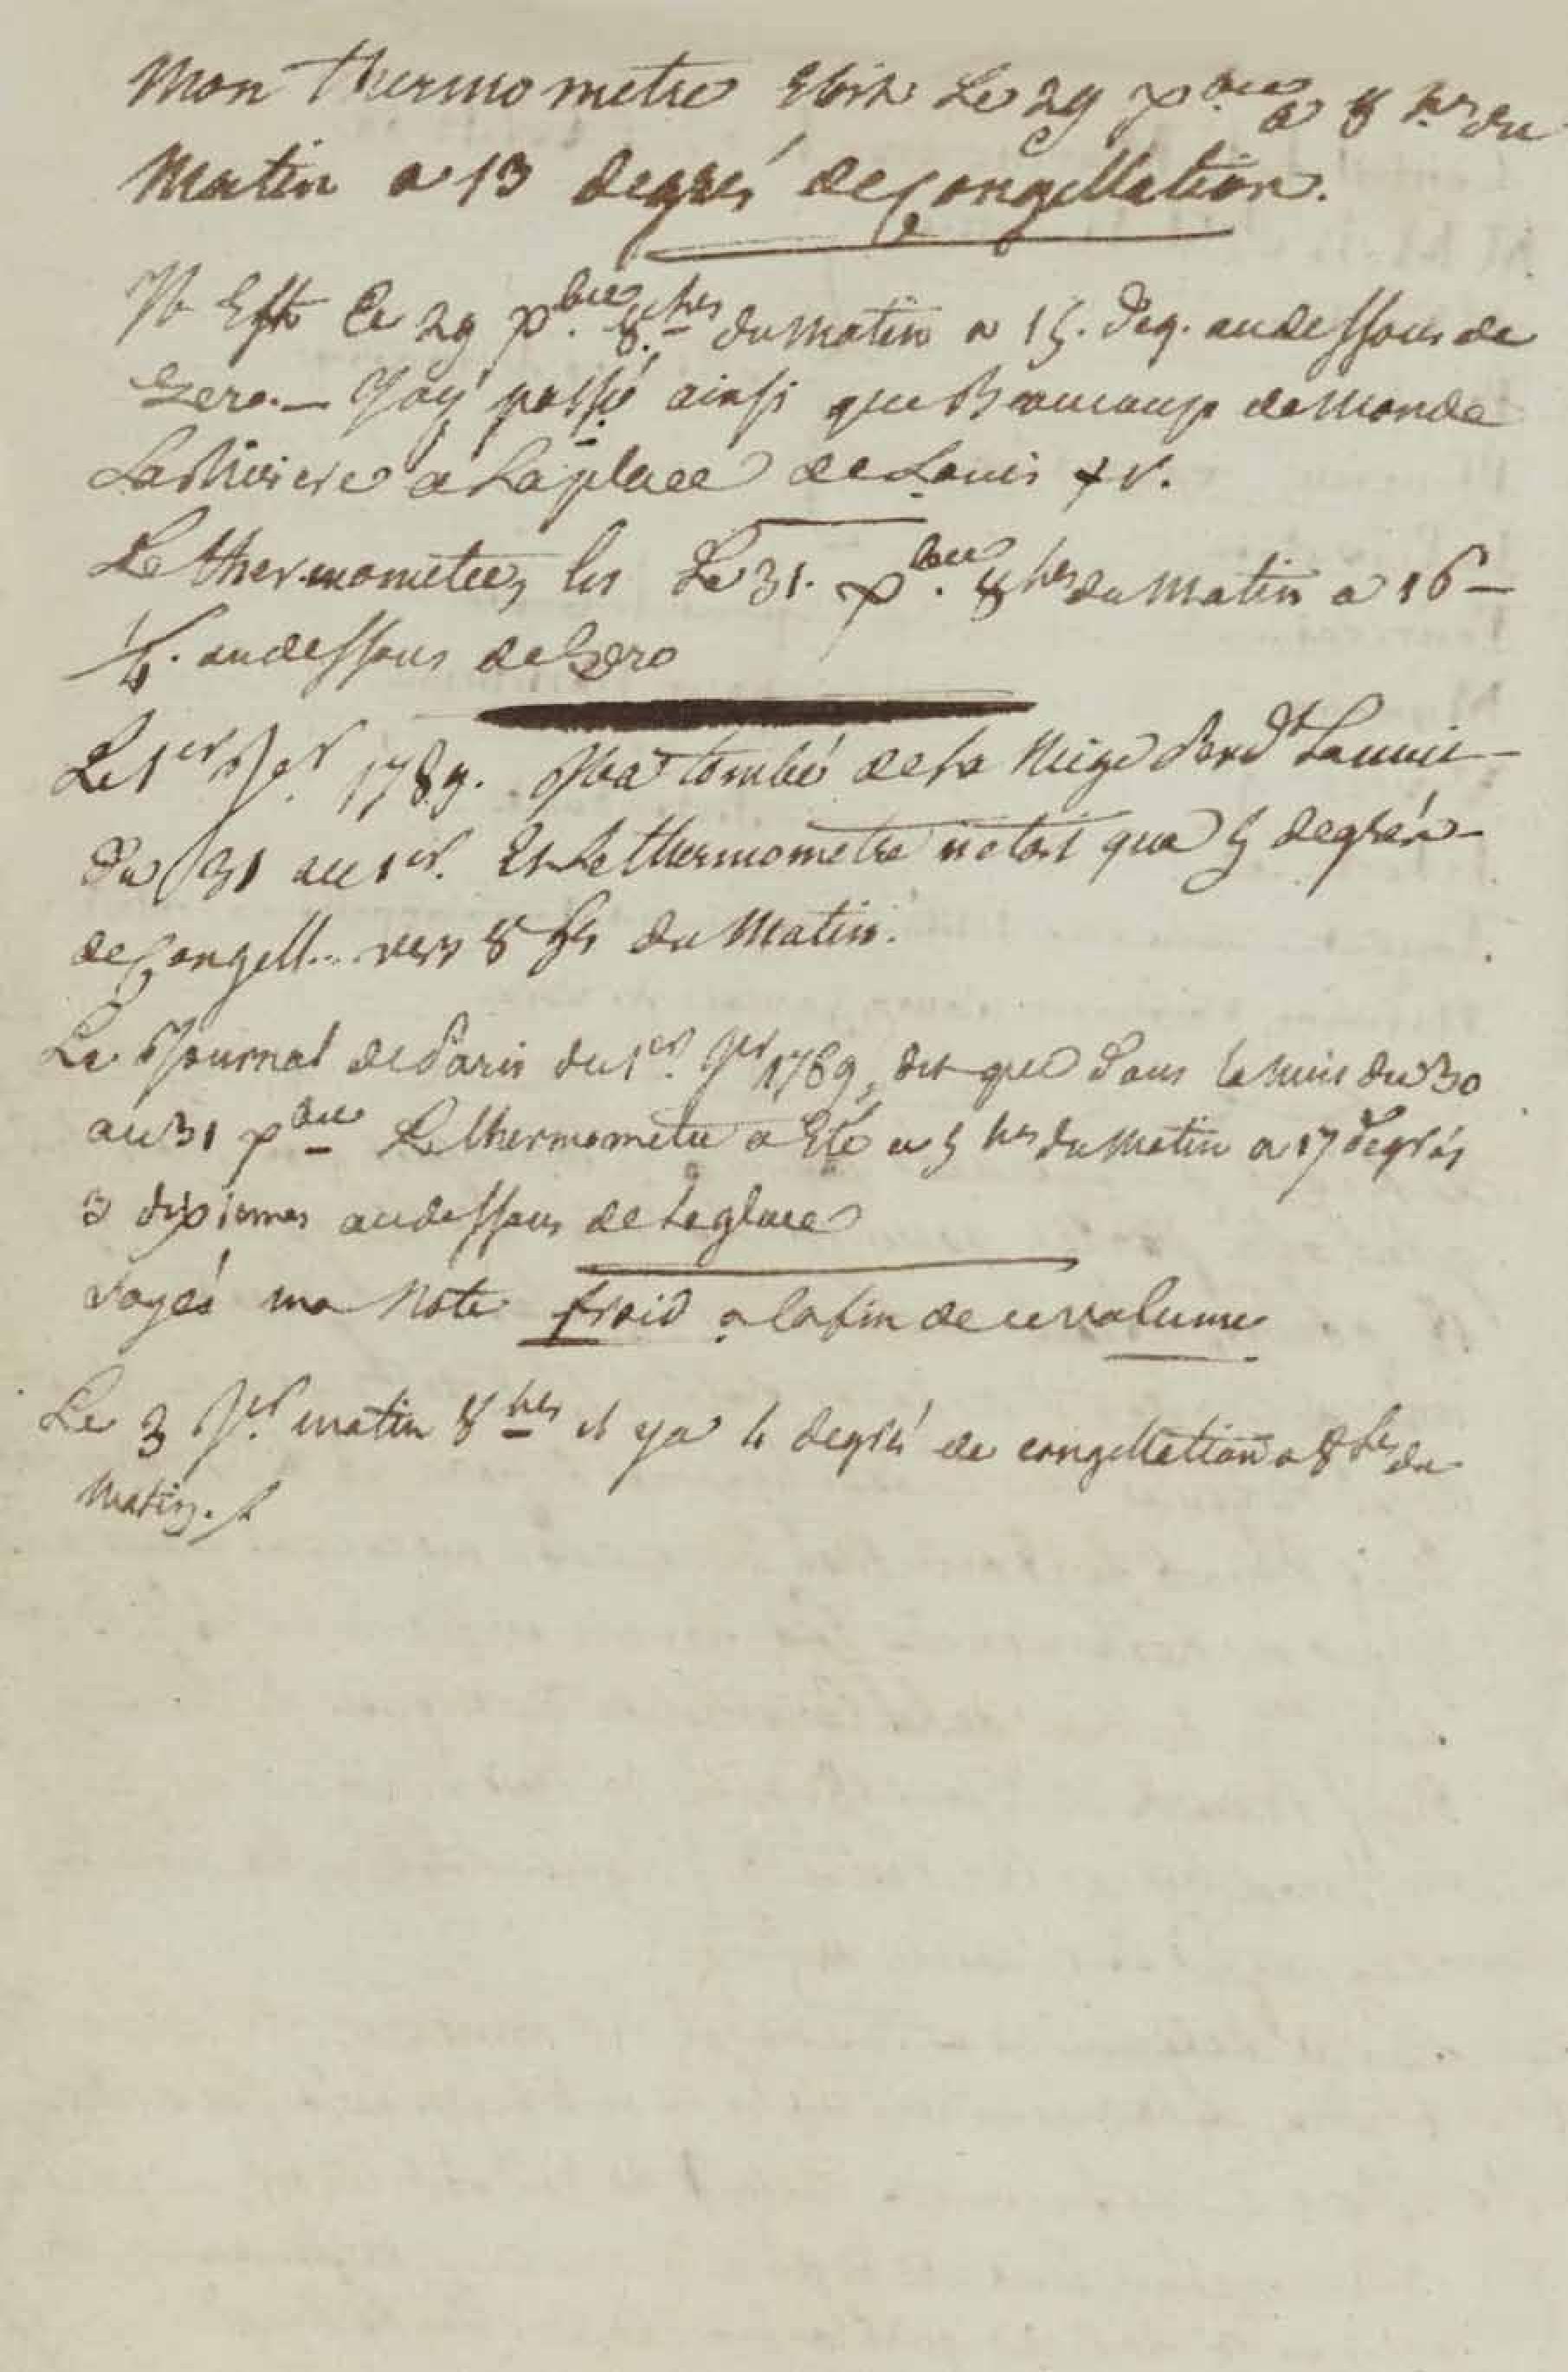 Mon thermometre Etoit Le 29 xbre a 8 hrs du
Matin a 13 degrés de Congellation.
Il Est Ce 29 xbre 8 hes du matin a 15. deg. audessous de
Zero. — J'ay passé ainsi que Beaucoup de monde
La Riviere a La place de Louis XV.
Le thermometre, les Le 31. xbre. 8 hes du matin a 16 —
1/4. audessous de Zero
Le 1er Jer 1789. Il a tombé de la Neige Pendt La nuit —
du 31 au 1er. Et Le thermometre n'etoit qua 5 degrés —
de Congell... vers 8 hes du Matin.
Le Journal de Paris du 1er. Jer 1789, dit que dans la nuit du 30
au 31 xbre Le thermometre a Eté a 5 hrs du matin a 17 degrés
3 dixiemes audessous de La glace
Voyés ma Note froid a la fin de ce volume
Le 3 Jer matin 8 hes il y a 4 degré de congellation a 8 hes du
Matin./.